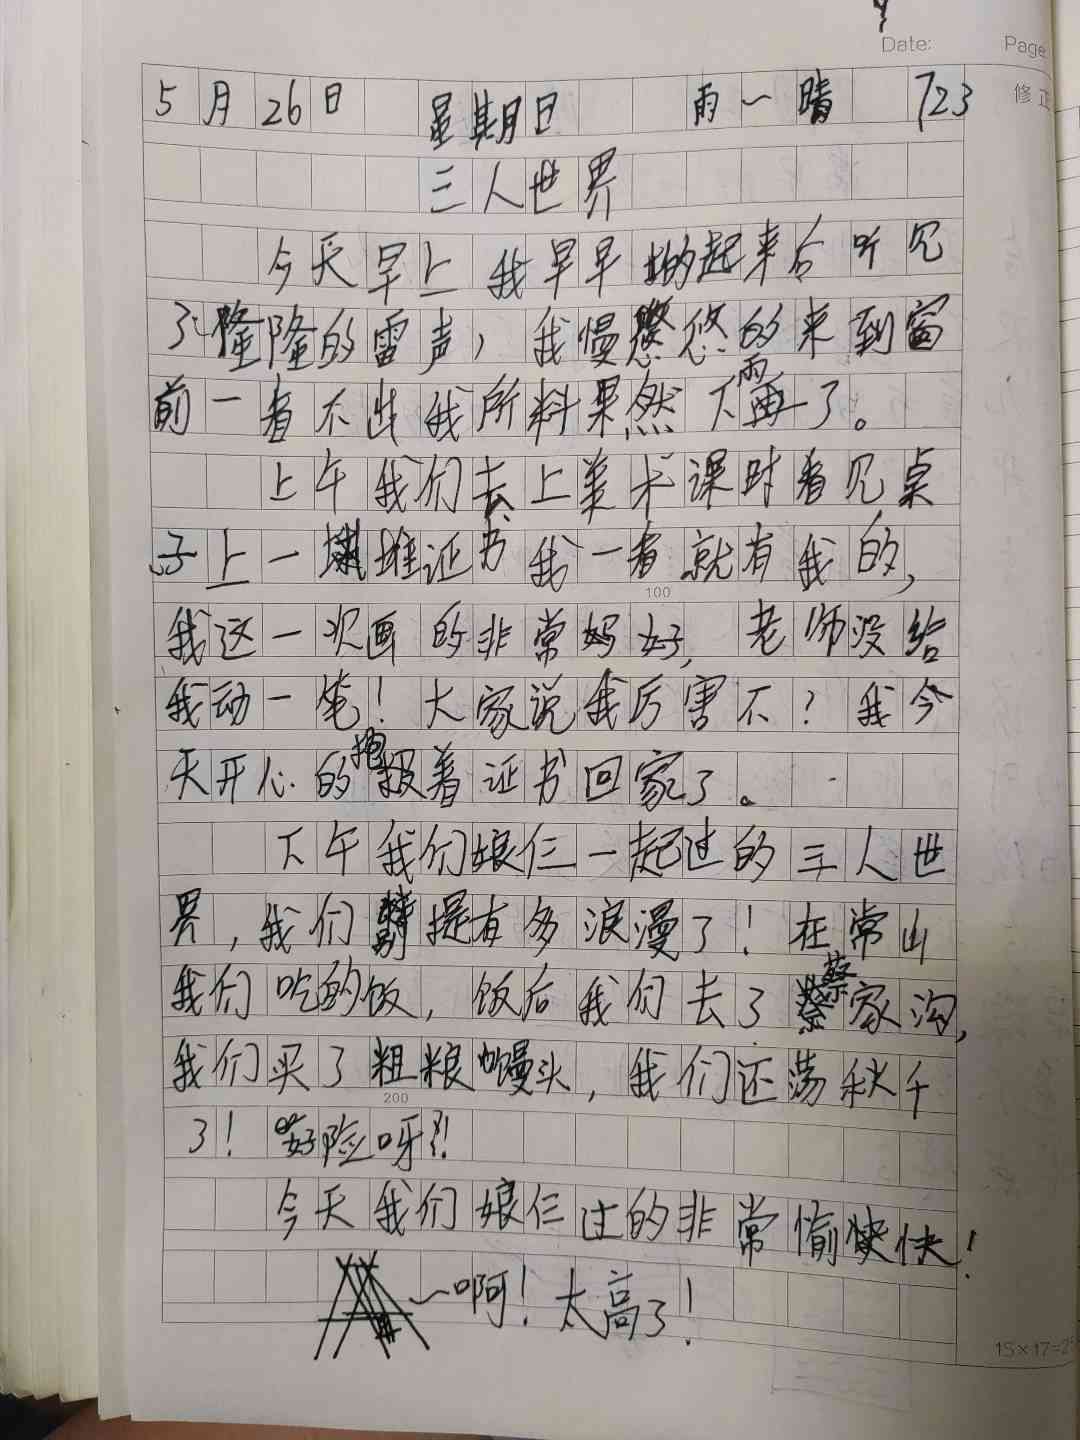 Date: Page
修正
5月26日 星期日 雨～晴 723
三人世界
今天早上我早早的起来后听见
了隆隆的雷声，我慢悠悠的来到窗
前一看不出我所料果然下雨了。
上午我们去上美术课时看见桌
子上一堆证书我一看就有我的，
我这一次画的非常好，老师没给
我动一笔！大家说我厉害不？我今
天开心的抱着证书回家了。
下午我们娘仨一起过的三人世
界，我们别提有多浪漫了！在常山
我们吃的饭，饭后我们去了蔡家沟，
100
我们买了粗粮馒头，我们还荡秋千
200
了！好险呀?!
今天我们娘仨过的非常愉快！
～啊！太高了！